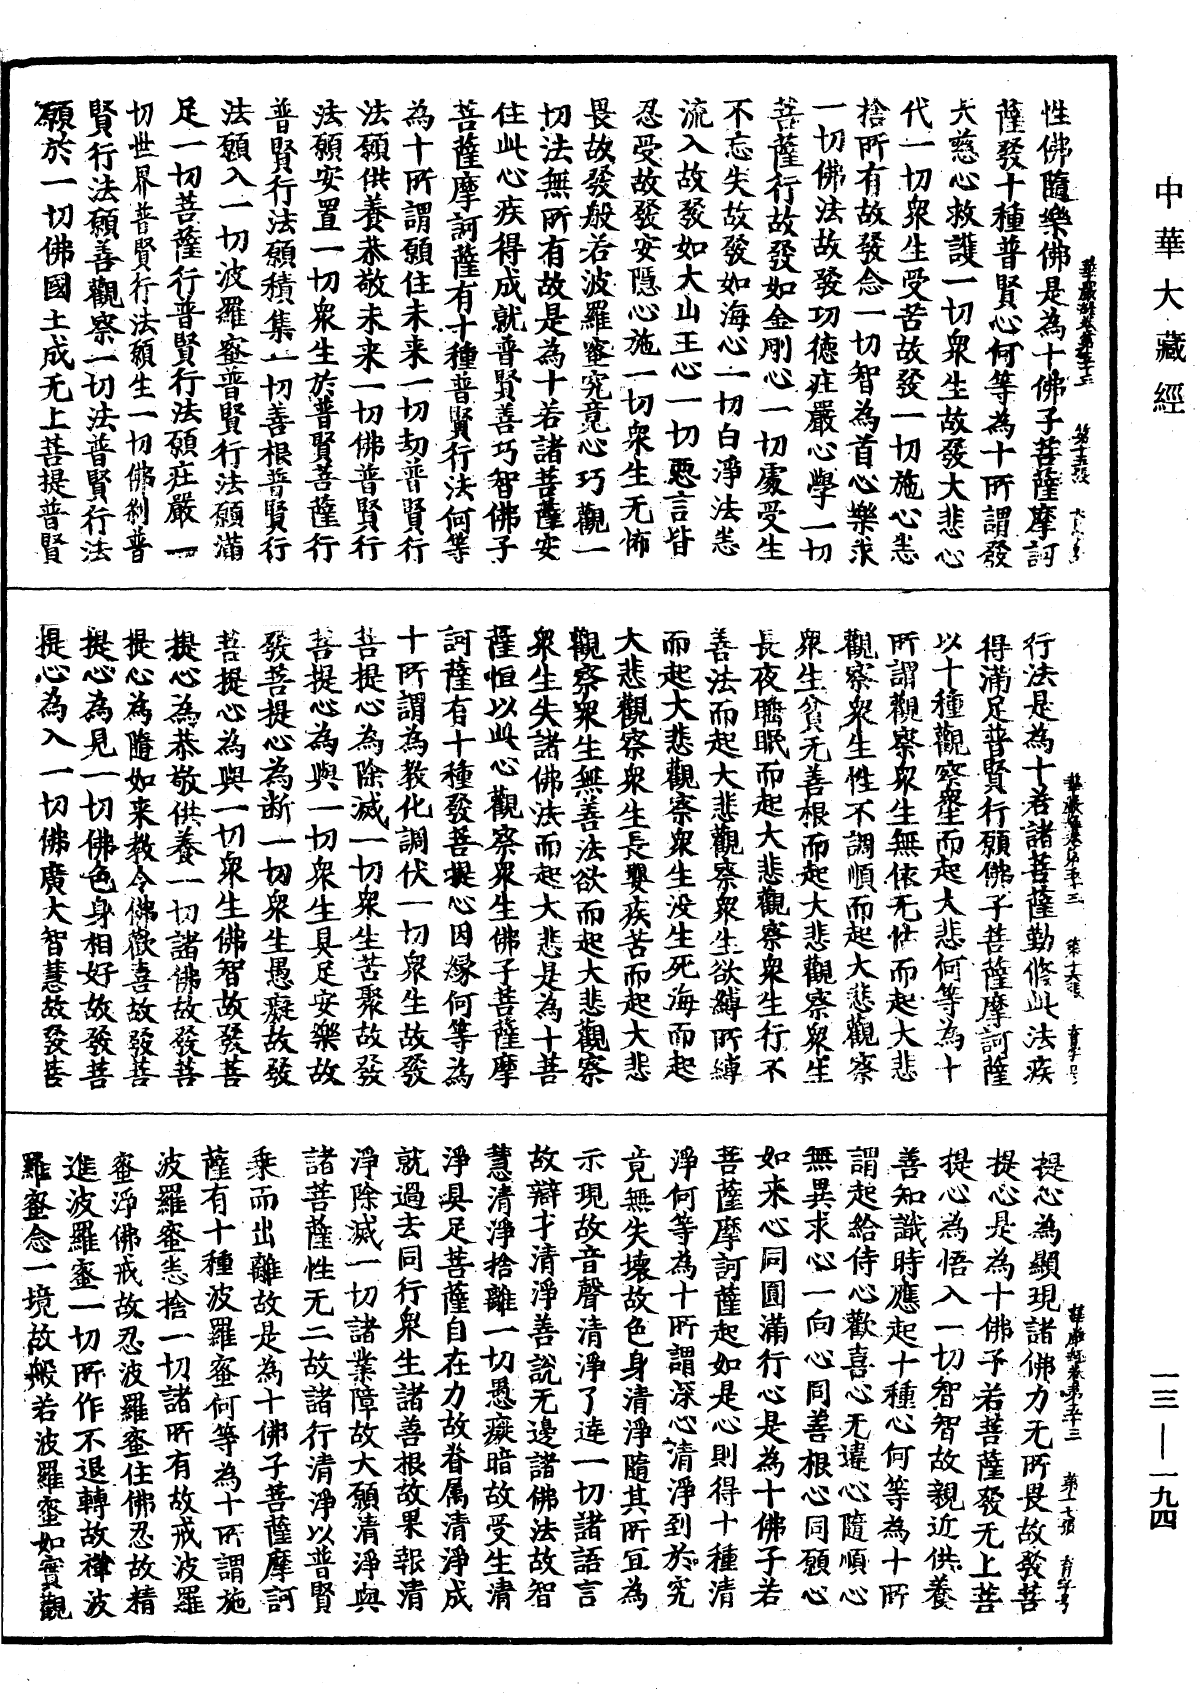 中華大藏經
性佛隨樂佛是為十佛子菩薩摩訶
薩發十種普賢心何等為十所謂發
大慈心救護一切眾生故發大悲心
代一切眾生受苦故發一切施心悉
捨所有故發念一切智為首心樂求
一切佛法故發功德莊嚴心學一切
菩薩行故發如金剛心一切處受生
不忘失故發如海心一切白淨法悉
流入故發如大山王心一切惡言皆
忍受故發安隱心施一切眾生无怖
畏故發般若波羅蜜究竟心巧觀一
切法無所有故是為十若諸菩薩安
住此心疾得成就普賢善巧智佛子
菩薩摩訶薩有十種普賢行法何等
為十所謂願住未来一切劫普賢行
法願供養恭敬未来一切佛普賢行
法願安置一切眾生於普賢菩薩行
普賢行法願積集一切善根普賢行
法願入一切波羅蜜普賢行法願滿
足一切菩薩行普賢行法願莊嚴一
切世界普賢行法願生一切佛剎普
賢行法願善觀察一切法普賢行法
願於一切佛國土成无上菩提普賢
行法是為十若諸菩薩勤修此法疾
得滿足普賢行願佛子菩薩摩訶薩
以十種觀察眾生而起大悲何等為十
所謂觀察眾生無依无怙而起大悲
觀察眾生性不調順而起大悲觀察
眾生貧无善根而起大悲觀察眾生
長夜睡眠而起大悲觀察眾生行不
善法而起大悲觀察眾生欲縛所縛
而起大悲觀察眾生没生死海而起
大悲觀察眾生長嬰疾苦而起大悲
觀察眾生無善法欲而起大悲觀察
眾生失諸佛法而起大悲是為十菩
薩恒以此心觀察眾生佛子菩薩摩
訶薩有十種發菩提心因緣何等為
十所謂為教化調伏一切眾生故發
菩提心為除滅一切眾生苦聚故發
菩提心為與一切眾生具足安樂故
發菩提心為斷一切眾生愚癡故發
菩提心為與一切眾生佛智故發菩
提心為恭敬供養一切諸佛故發菩
提心為隨如来教令佛歡喜故發菩
提心為見一切佛色身相好故發菩
提心為入一切佛廣大智慧故發菩
提心為顯現諸佛力无所畏故發菩
提心是為十佛子若菩薩發无上菩
提心為悟入一切智智故親近供養
善知識時應起十種心何等為十所
謂起給侍心歡喜心无違心隨順心
無異求心一向心同善根心同願心
如来心同圓滿行心是為十佛子若
菩薩摩訶薩起如是心則得十種清
淨何等為十所謂深心清淨到於究
竟無失壞故色身清淨隨其所宜為
示現故音聲清淨了達一切諸語言
故辯才清淨善說无邊諸佛法故智
慧清淨捨離一切愚癡暗故受生清
淨具足菩薩自在力故眷属清淨成
就過去同行眾生諸善根故果報清
淨除滅一切諸業障故大願清淨與
諸菩薩性无二故諸行清淨以普賢
乘而出離故是為十佛子菩薩摩訶
薩有十種波羅蜜何等為十所謂施
波羅蜜悉捨一切諸所有故戒波羅
蜜淨佛戒故忍波羅蜜住佛忍故精
進波羅蜜一切所作不退轉故禪波
羅蜜念一境故般若波羅蜜如實觀
一三—一九四